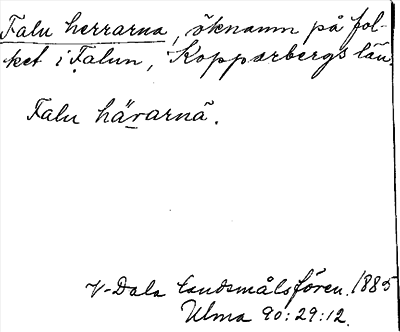 Falu herrarna, öknamn på fol-
ket i Falun, Kopparbergs län.
Falu härarnä.
V-Dala landsmålsfören. 1885
Ulma 90:29:12.